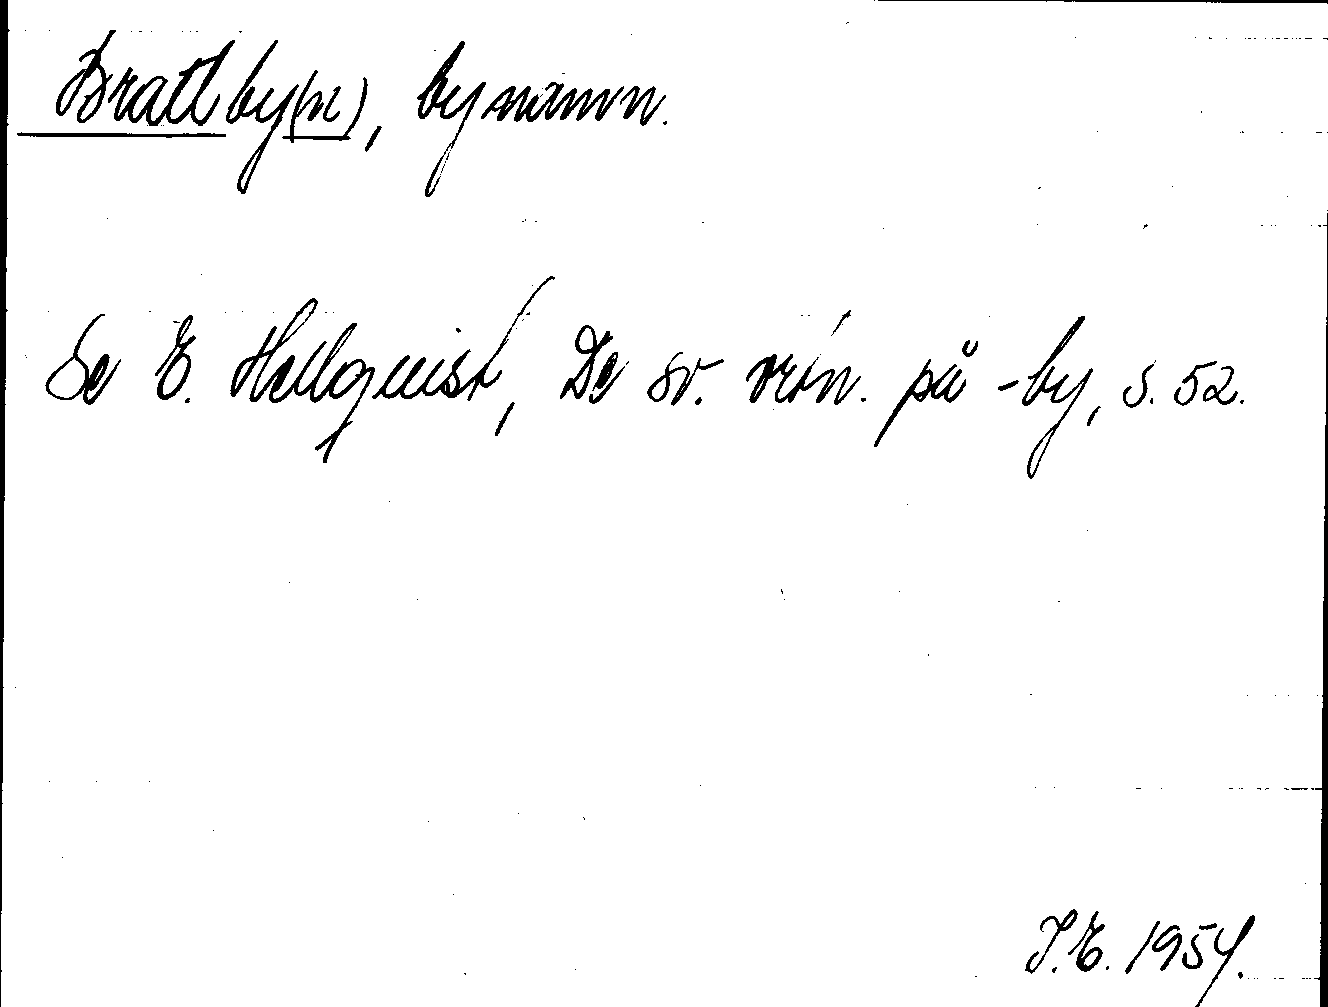 Brattby(n), bynamn.
Se E. Hellquist, De sv. ortn. på -by, s. 52.
I.E. 1954.